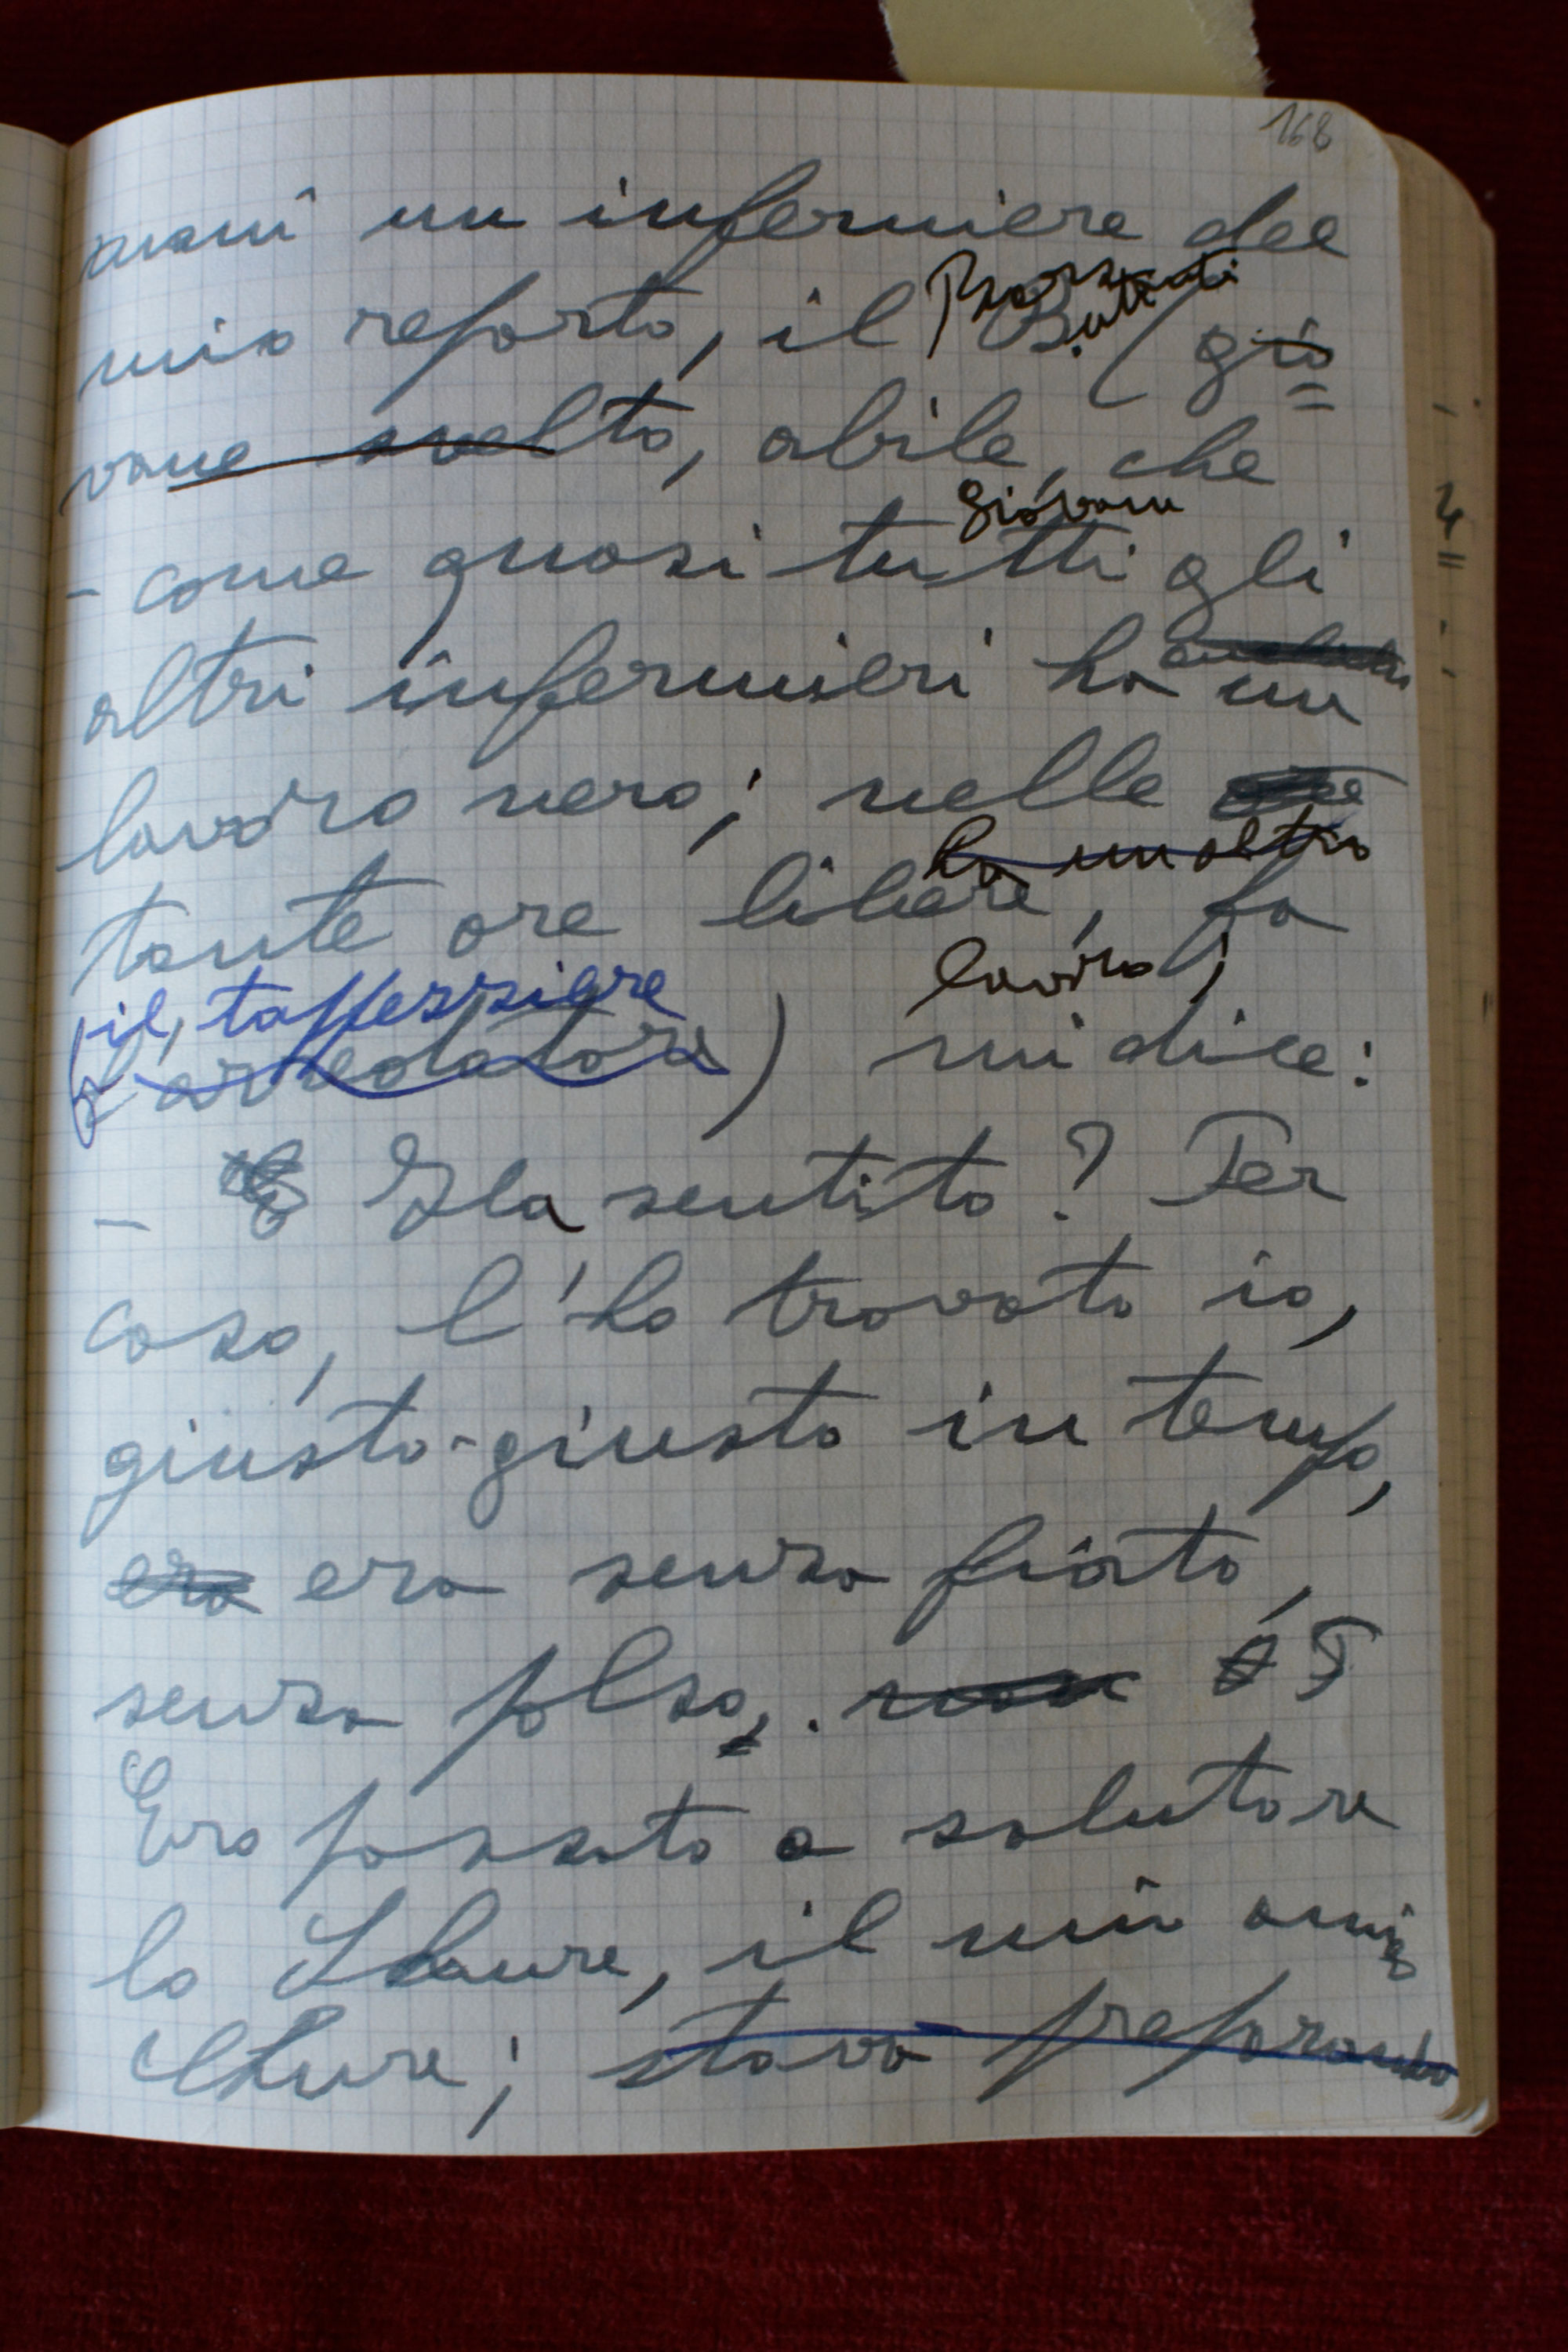 168
mani un infermiere del
mio reparto, il B. (gio=
vane svelto, abile, che
giovani
- come quasi tutti gli
altri infermieri ha un
lavoro nero; nelle
ha un altro
tante ore libere, fa
lavoro;
il tappezziere
) mi dice:
- Ha sentito? Per
caso, l'ho trovato io,
giusto-giusto in tempo,
era era senza fiato,
senza polso.
Ero passato a salutare
la
il mio
stava preparando